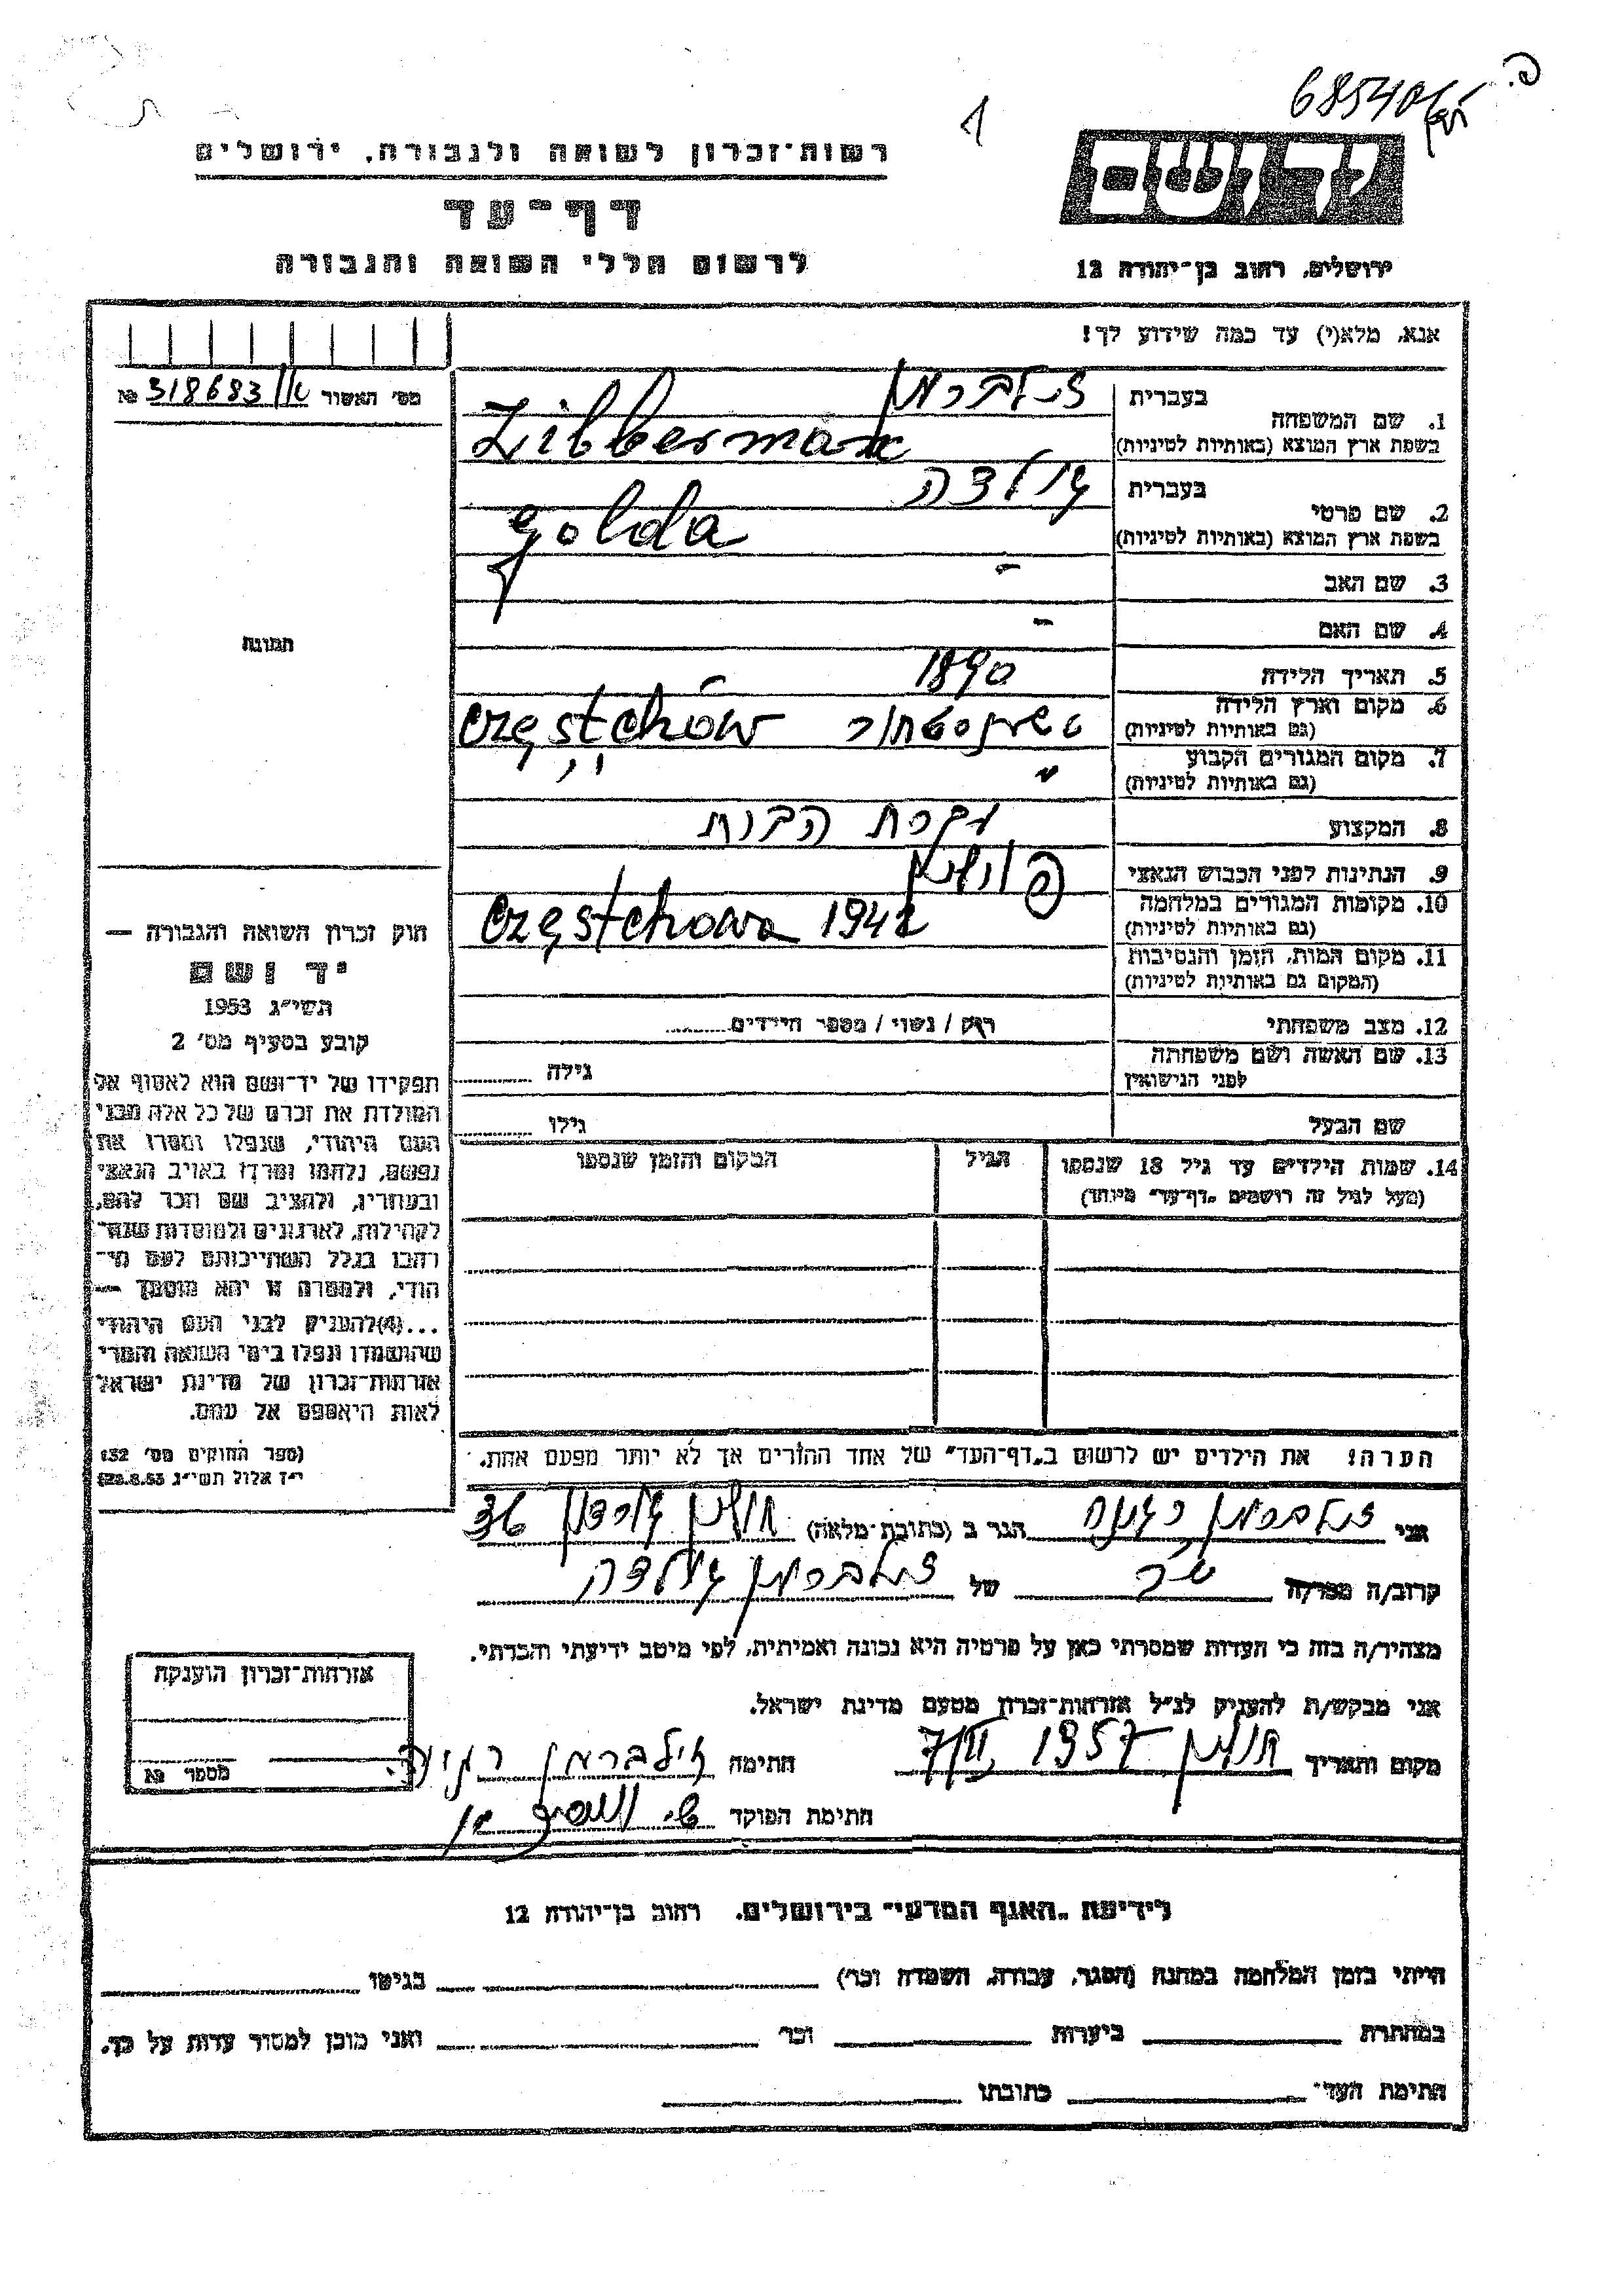 6854066
1
רשות־זכרון לשואה ולגבורה, ירושלים
דף־עד
לרשום חללי השואה והגבורה
ידושם
ירושלים, רחוב בן־יהודה 12
אנא, מלא(י) עד כמה שידוע לך!
מס׳ האשור № 318683
1. שם המשפחה
בעברית זילברמן
בשפת ארץ המוצא (באותיות לטיניות) Zilberman
2. שם פרטי
בעברית גולדה
בשפת ארץ המוצא (באותיות לטיניות) Golda
3. שם האב -
4. שם האם -
5. תאריך הלידה 1890
6. מקום וארץ הלידה
(גם באותיות לטיניות) טשנסטחוב Częstchów
7. מקום המגורים הקבוע
(גם באותיות לטיניות) " "
8. המקצוע עקרת הבית
9. הנתינות לפני הכבוש הנאצי פולנית
10. מקומות המגורים במלחמה
(גם באותיות לטיניות) Częstchowa 1942
11. מקום המות, הזמן והנסיבות
(המקום גם באותיות לטיניות)
12. מצב משפחתי רוק / נשוי / מספר הילדים
13. שם האשה ושם משפחתה
לפני הנישואין גילה
שם הבעל גילו
14. שמות הילדים עד גיל 18 שנספו
(מעל לגיל זה רושמים „דף־עד״ מיוחד)
הגיל
המקום והזמן שנספו
תמונה
חוק זכרון השואה והגבורה —
יד ושם
תשי״ג 1953
קובע בסעיף מס׳ 2
תפקידו של יד־ושם הוא לאסוף אל
המולדת את זכרם של כל אלה מבני
העם היהודי, שנפלו ומסרו את
נפשם, נלחמו ומרדו באויב הנאצי
ובעוזריו, ולהציב שם וזכר להם,
לקהילות, לארגונים ולמוסדות שנח־
רבו בגלל השתייכותם לעם הי־
הודי, ולמטרה זו יהא מוסמך —
...(4)להעניק לבני העם היהודי
שהושמדו ונפלו בימי השואה והמרי
אזרחות־זכרון של מדינת ישראל
לאות היאספם אל עמם.
(ספר החוקים מס׳ 132
י״ז אלול תשי״ג 28.8.53)
הערה! את הילדים יש לרשום ב„דף־העד״ של אחד ההורים אך לא יותר מפעם אחת.
אני זילברמן הגר ב (כתובת־מלאה) חולון 36
קרוב/ה מכר/ה של זילברמן גולדה
מצהיר/ה בזה כי העדות שמסרתי כאן על פרטיה היא נכונה ואמיתית, לפי מיטב ידיעתי והכרתי.
אני מבקש/ת להעניק לנ״ל אזרחות־זכרון מטעם מדינת ישראל.
מקום ותאריך חולון 1957 חתימה זילברמן
חתימת הפוקד
אזרחות־זכרון הוענקה
מספר №
לידיעת „האגף המדעי״ בירושלים, רחוב בן־יהודה 12
הייתי בזמן המלחמה במחנה (הסגר, עבודה, השמדה וכו׳) בגיטו
במחתרת ביערות וכו׳ ואני מוכן למסור עדות על כך.
חתימת העד כתובתו